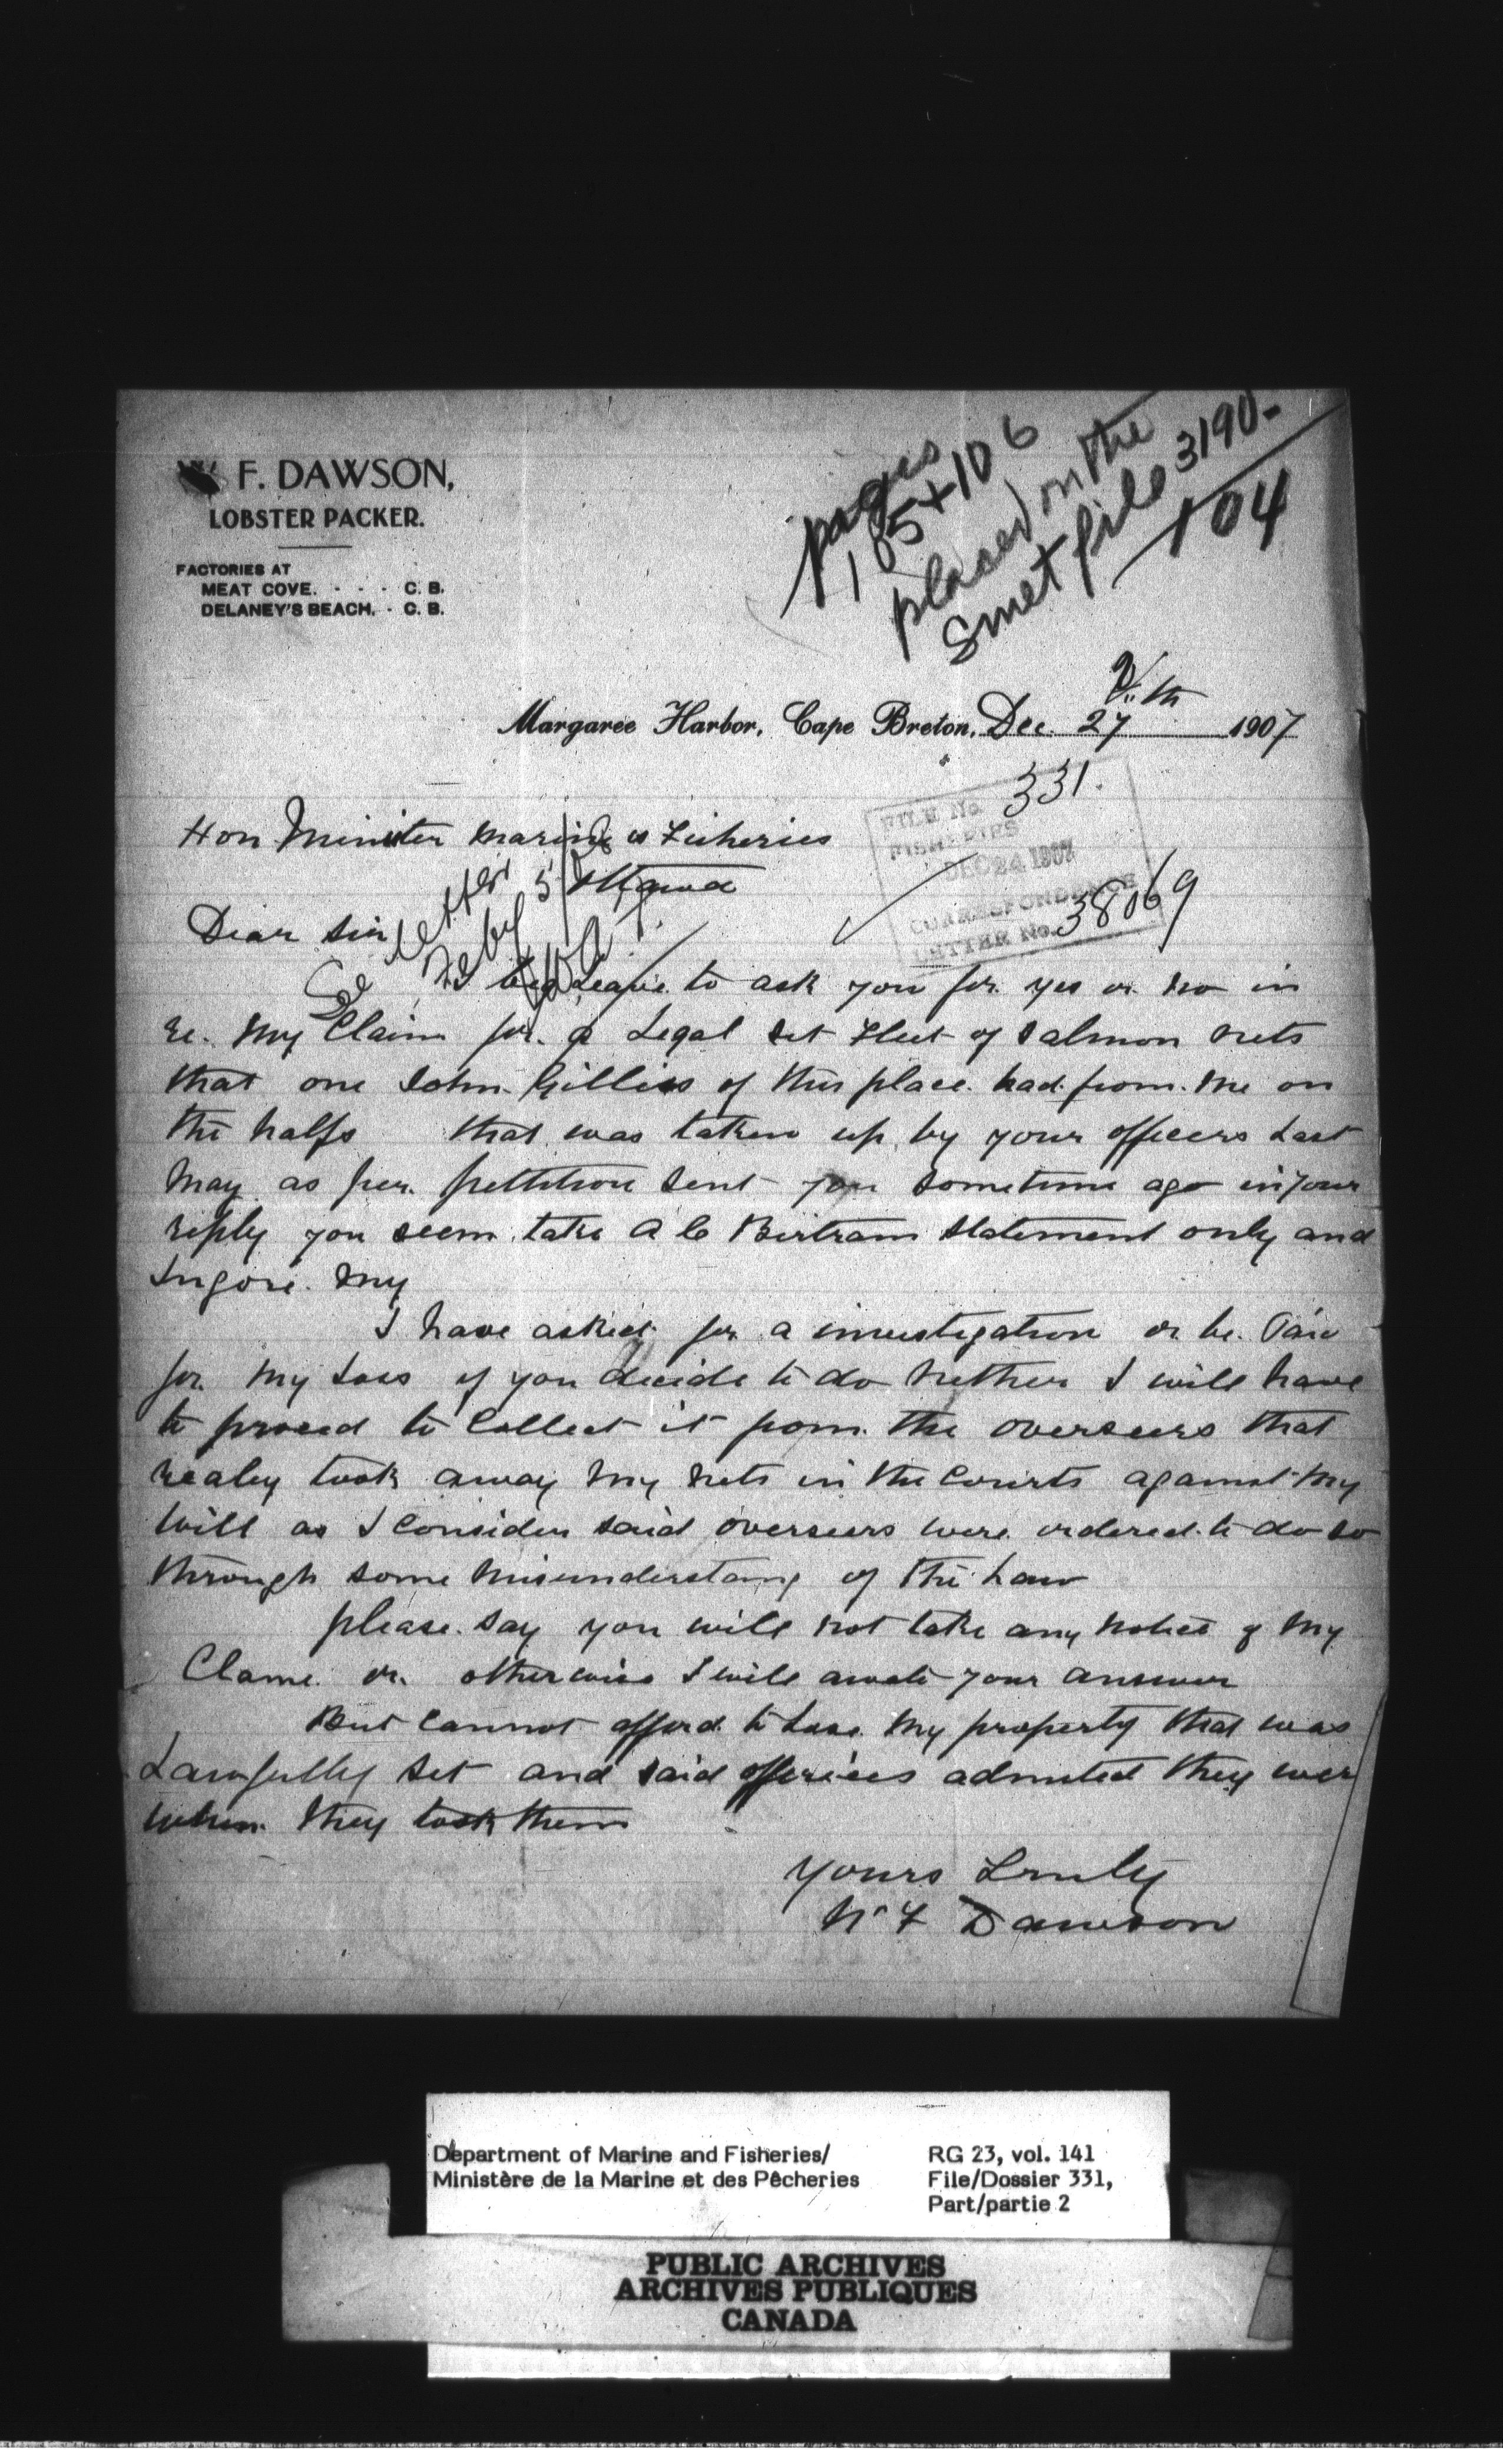 F. DAWSON,
LOBSTER PACKER.
FACTORIES AT
MEAT COVE. - - - C. B.
DELANEY'S BEACH. - C. B.
pages
105 + 106
placed on the
Smet file 3190-
104
Margaree Harbor, Cape Breton, Dec. 27 1907
331.
FILE No.
FISHERIES
DEC 24 1907
CORRESPONDENCE
LETTER No. 38069
Hon Minister Marine & Fisheries
Ottawa
Dear Sir
See letter
Feby 5/08
I beg Leave to ask you for yes or no in
re. My Claim for a Legal set Fleet of Salmon nets
that one John Gillies of this place had from me on
the halfs that was taken up by your officers Last
May as per pettition sent you sometime ago in your
reply you seem take A C Bertram statement only and
Ingore My
I have asked for a investigation or be Paid
for My Loss if you decide to do nether I will have
to proceed to Collect it from the overseers that
realey took away My nets in the Courts against My
will as I Consider said overseers were ordered to do so
through some misunderstang of the Law
please say you will not take any notice of My
Clame or otherwise I will awate your answer
But Cannot afford to Lose My property that was
Lawfully set and said officices admited they wer
when they took them
Yours Truly
F Dawson
Department of Marine and Fisheries/
Ministère de la Marine et des Pêcheries
RG 23, vol. 141
File/Dossier 331,
Part/partie 2
PUBLIC ARCHIVES
ARCHIVES PUBLIQUES
CANADA